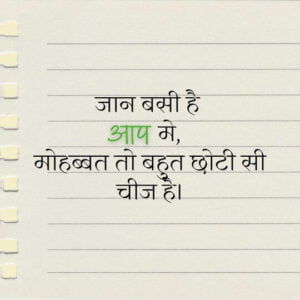 जान बसी है
आप मे,
मोहब्बत तो बहुत छोटी सी
चीज है।